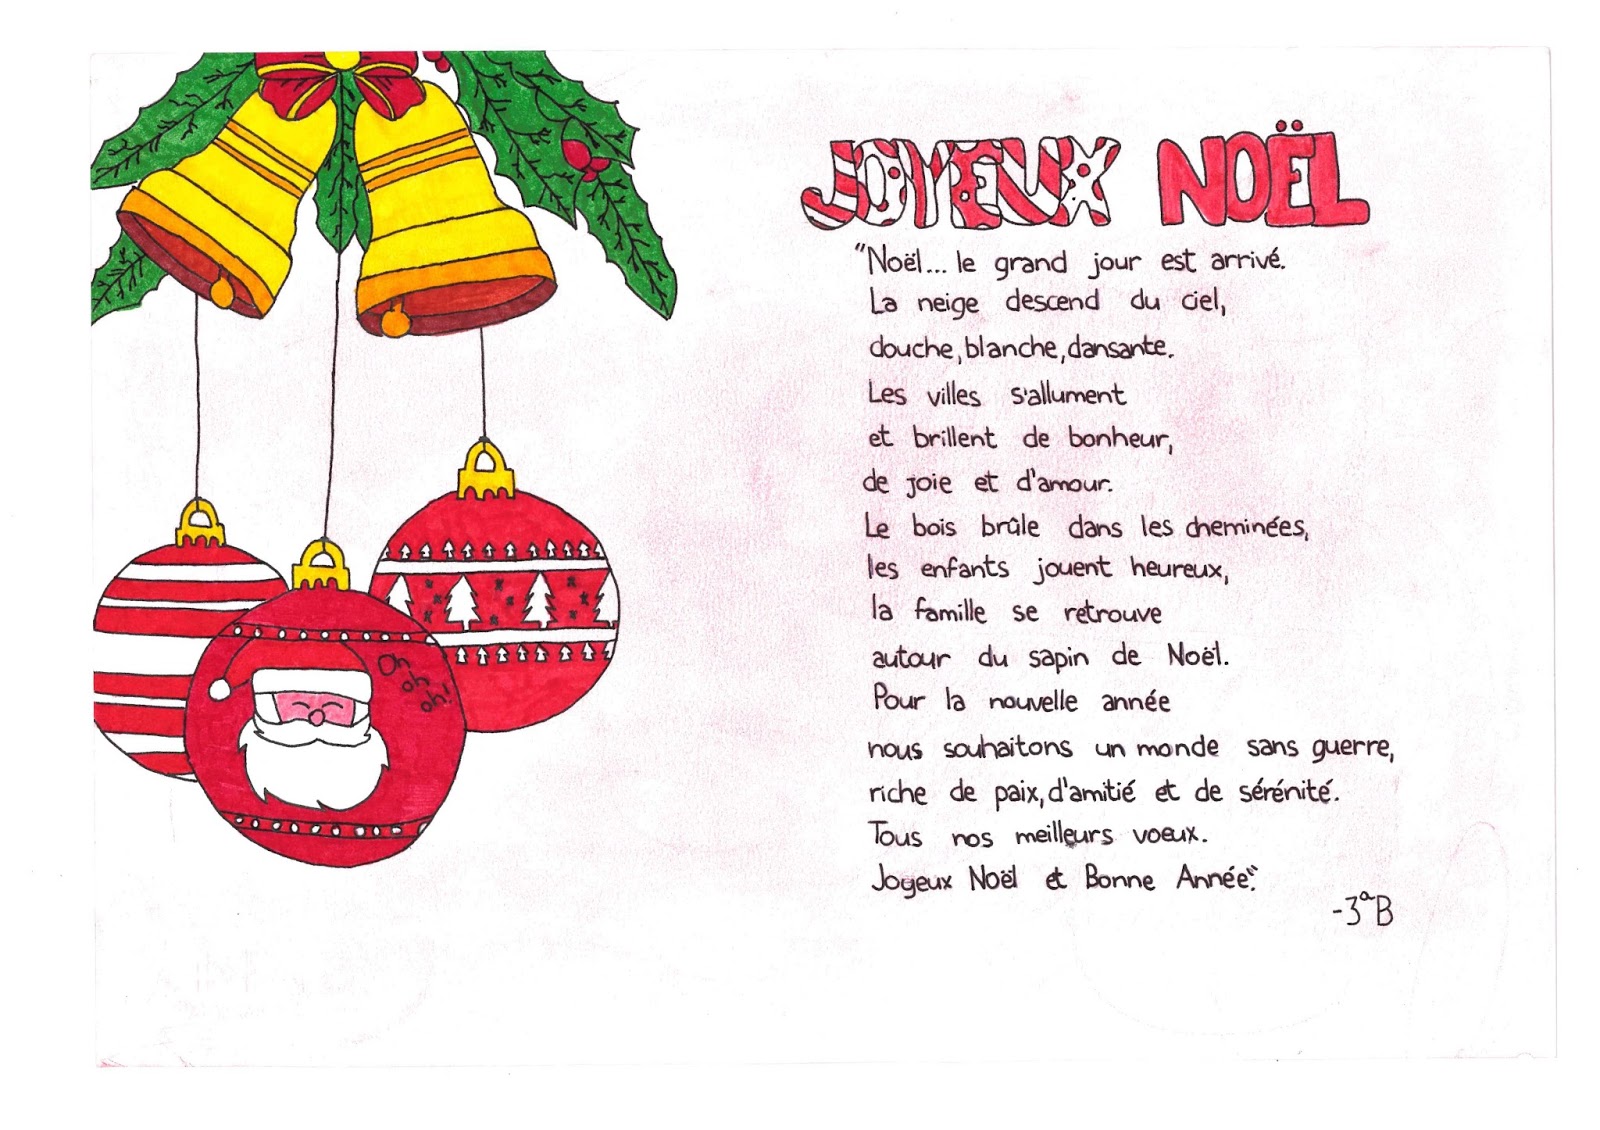 JOYEUX NOËL
"Noël... le grand jour est arrivé.
La neige descend du ciel,
douche, blanche, dansante.
Les villes s'allument
et brillent de bonheur,
de joie et d'amour.
Le bois brûle dans les cheminées,
les enfants jouent heureux,
la famille se retrouve
autour du sapin de Noël.
Pour la nouvelle année
nous souhaitons un monde sans guerre,
riche de paix, d'amitié et de sérénité.
Tous nos meilleurs voeux.
Joyeux Noël et Bonne Année".
-3ªB
Oh
oh
oh!